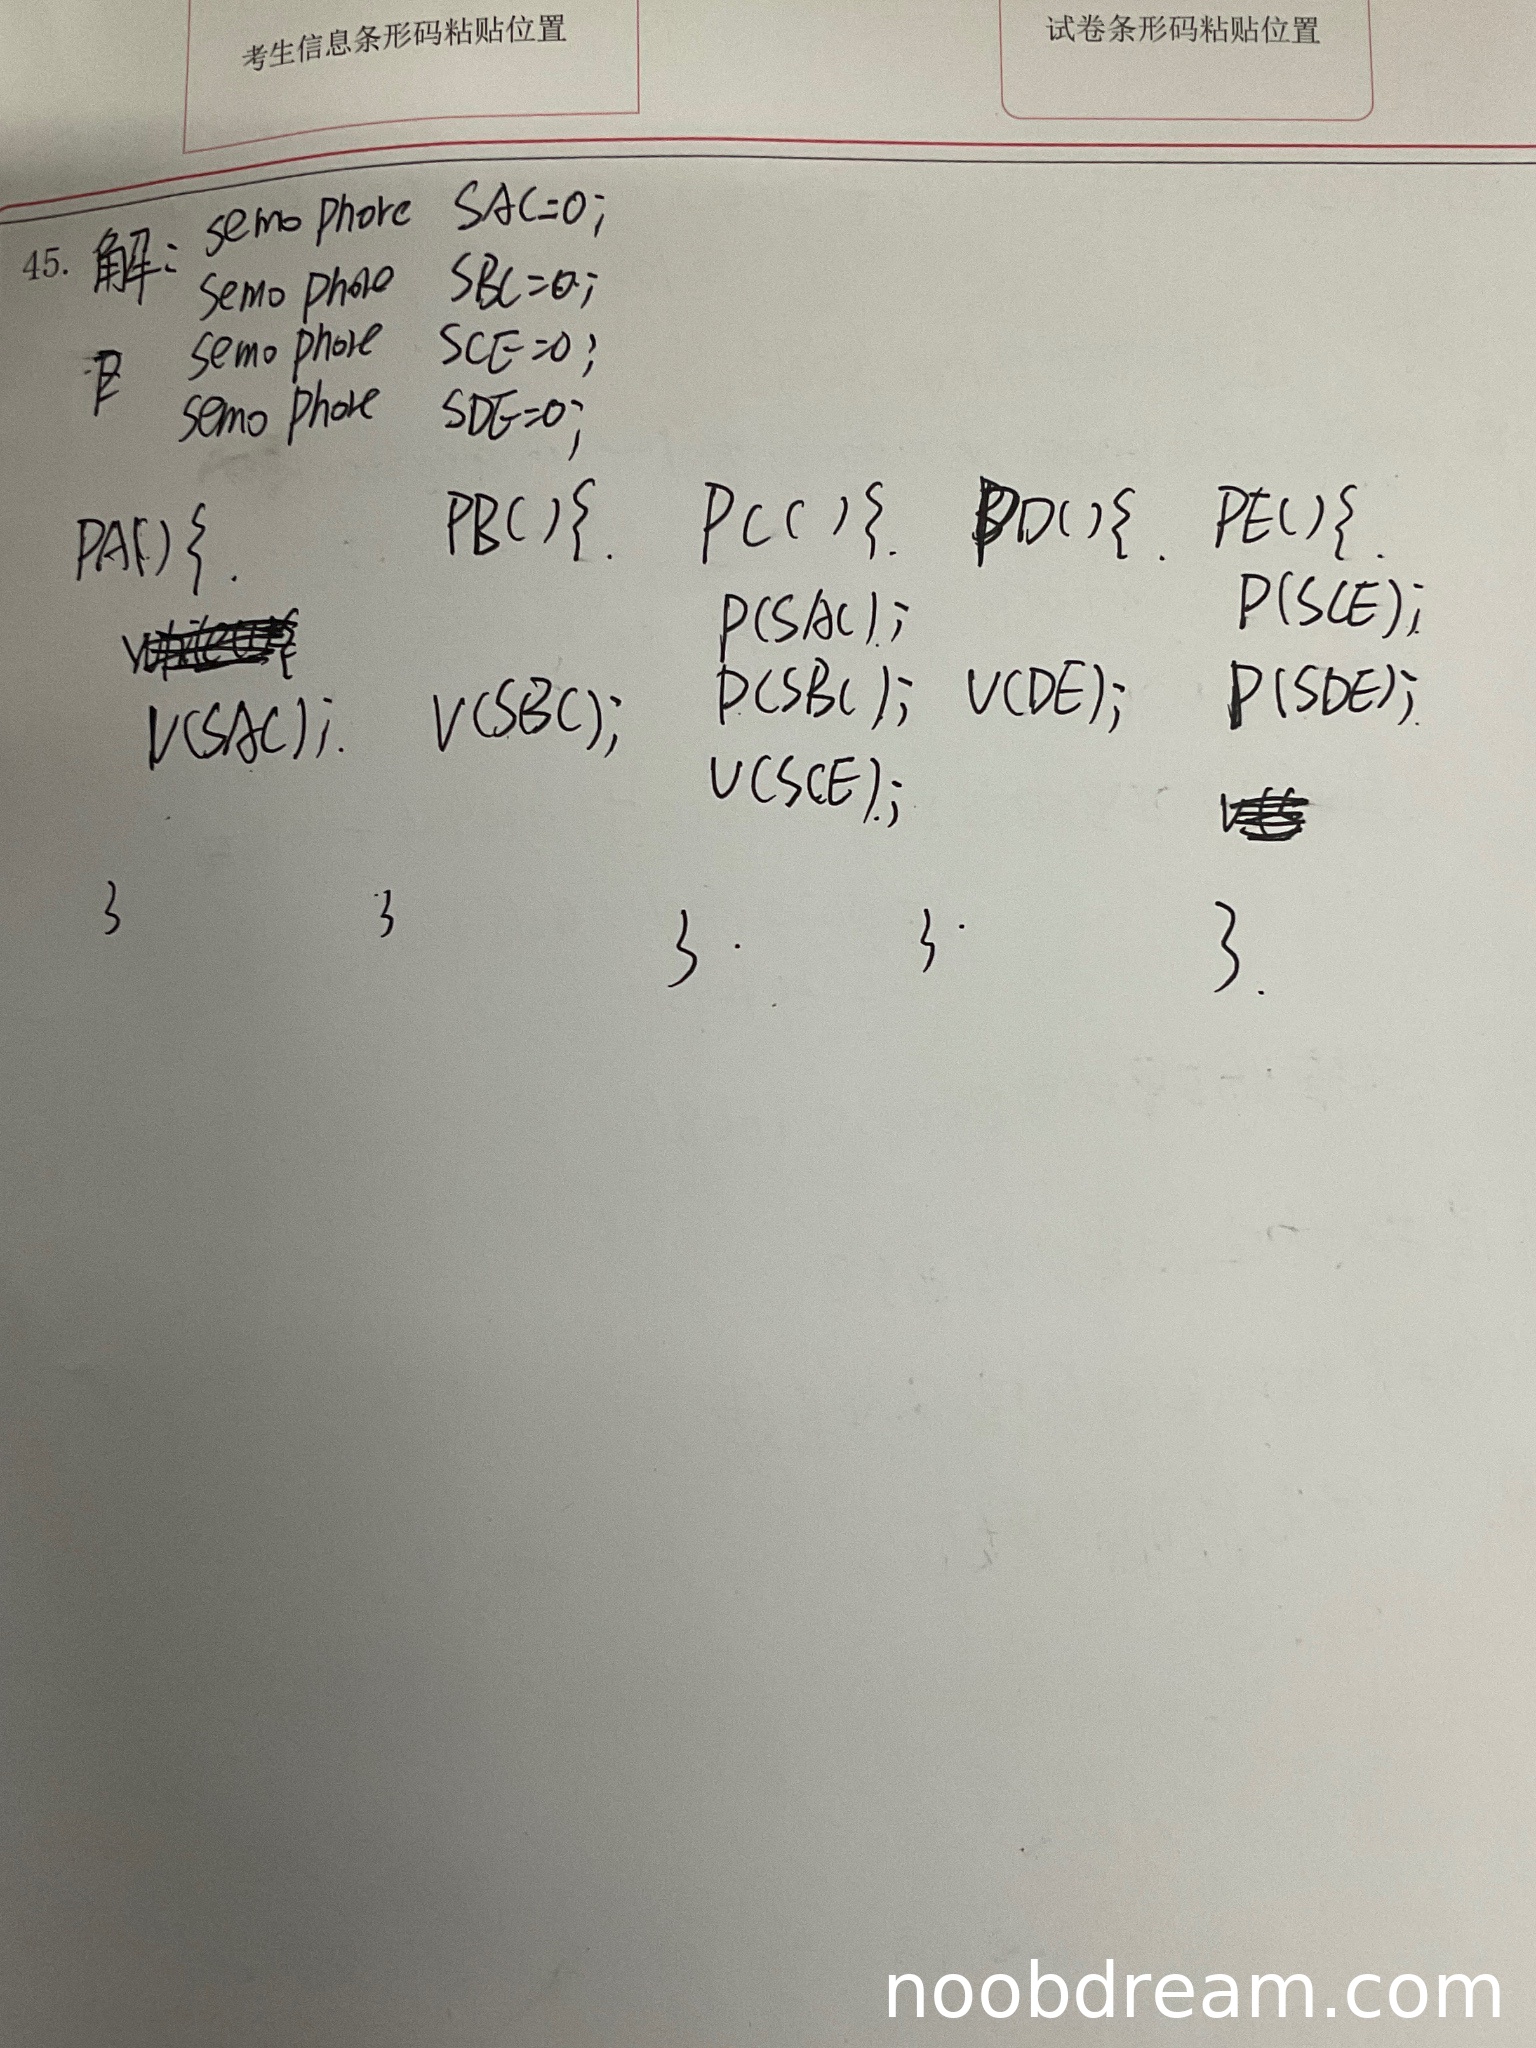 考生信息条形码粘贴位置
试卷条形码粘贴位置
45. 解: semo phore SAC=0;
semo phore SBC=0;
semo phore SCE=0;
semo phore SDE=0;
PA(){. PB(){. PC(){. PD(){. PE(){.
P(SAC); P(SCE);
V(SAC); V(SBC); P(SBC); V(DE); P(SDE);
V(SCE);
} } } } }
noobdream.com